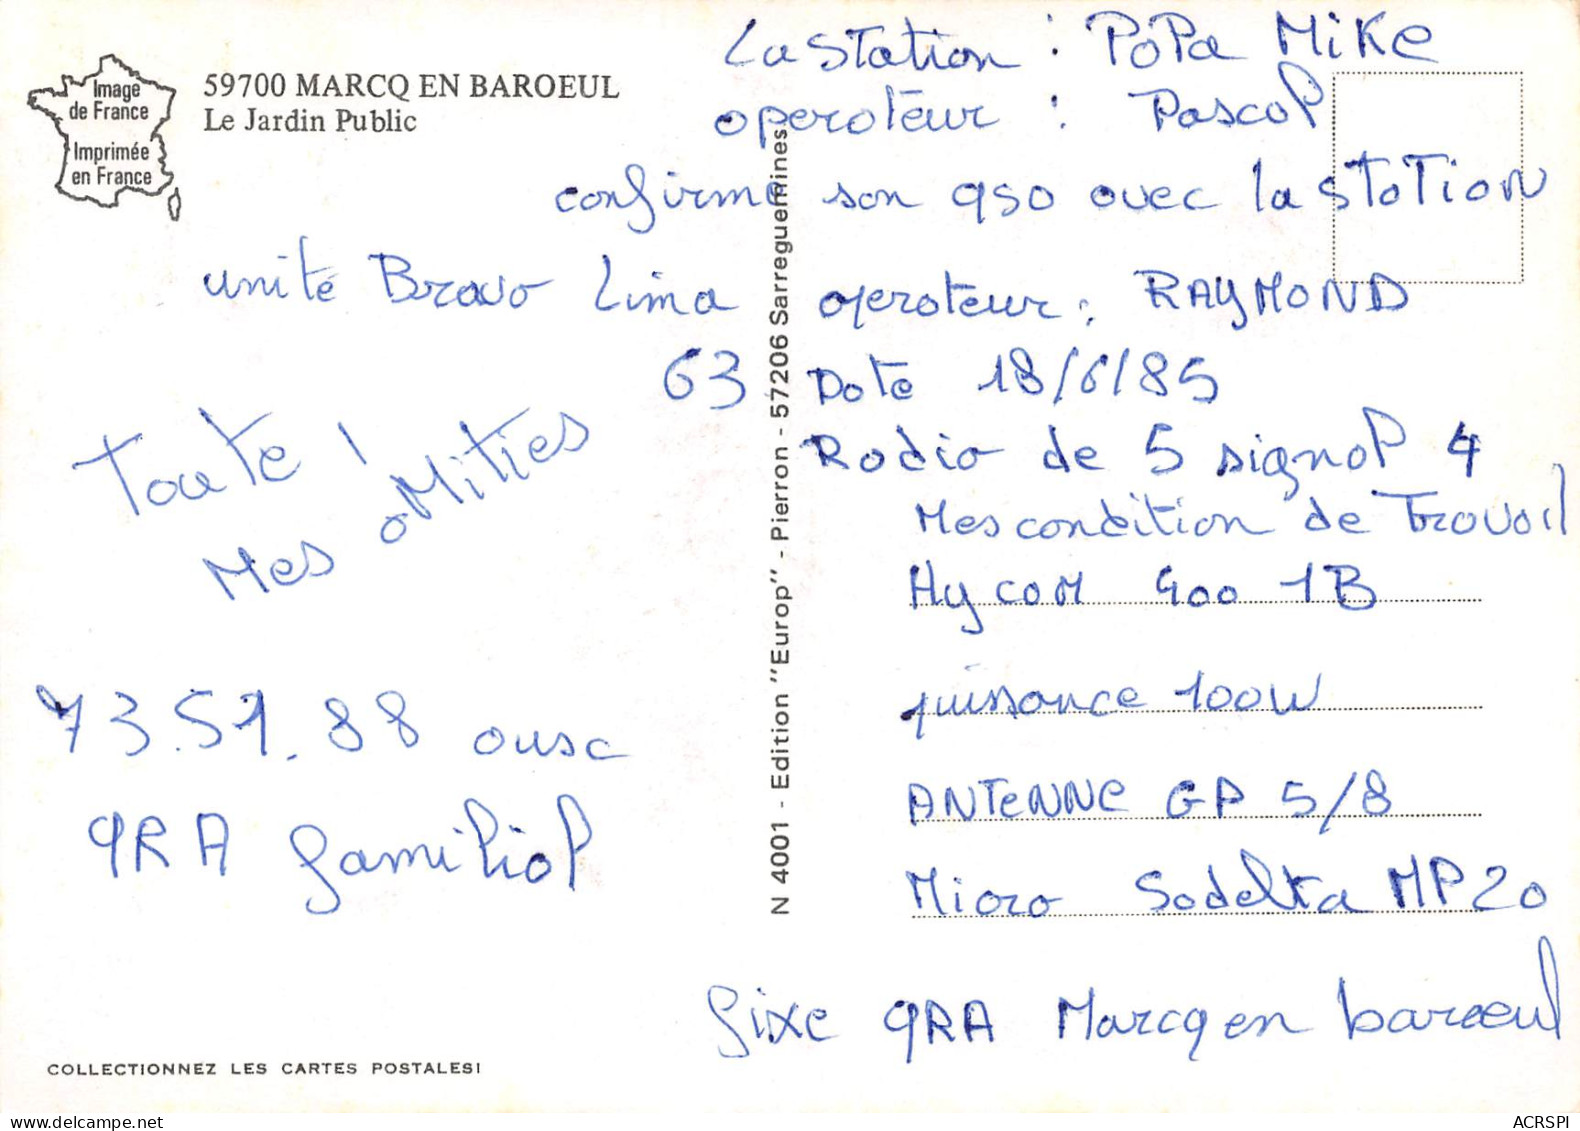 La station : PoPa Mike
Image
de France
Imprimée
en France
59700 MARCQ EN BAROEUL
Le Jardin Public
operateur : Pascal
confirme son QSO avec la station
unité Bravo Lima operateur : RAYMOND
63 Date 18/6/85
Toute ! Radio de 5 signal 4
Mes aMities
Mes condition de Travail
HycoM 400 1B
73.51.88 ousc
puissance 100W
QRA familial
ANTeNNe GP 5/8
Micro Sadelta MP20
fixe QRA Marcq en baroeul
N 4001 - Edition "Europ" - Pierron - 57206 Sarreguemines
COLLECTIONNEZ LES CARTES POSTALES!
ACRSPI